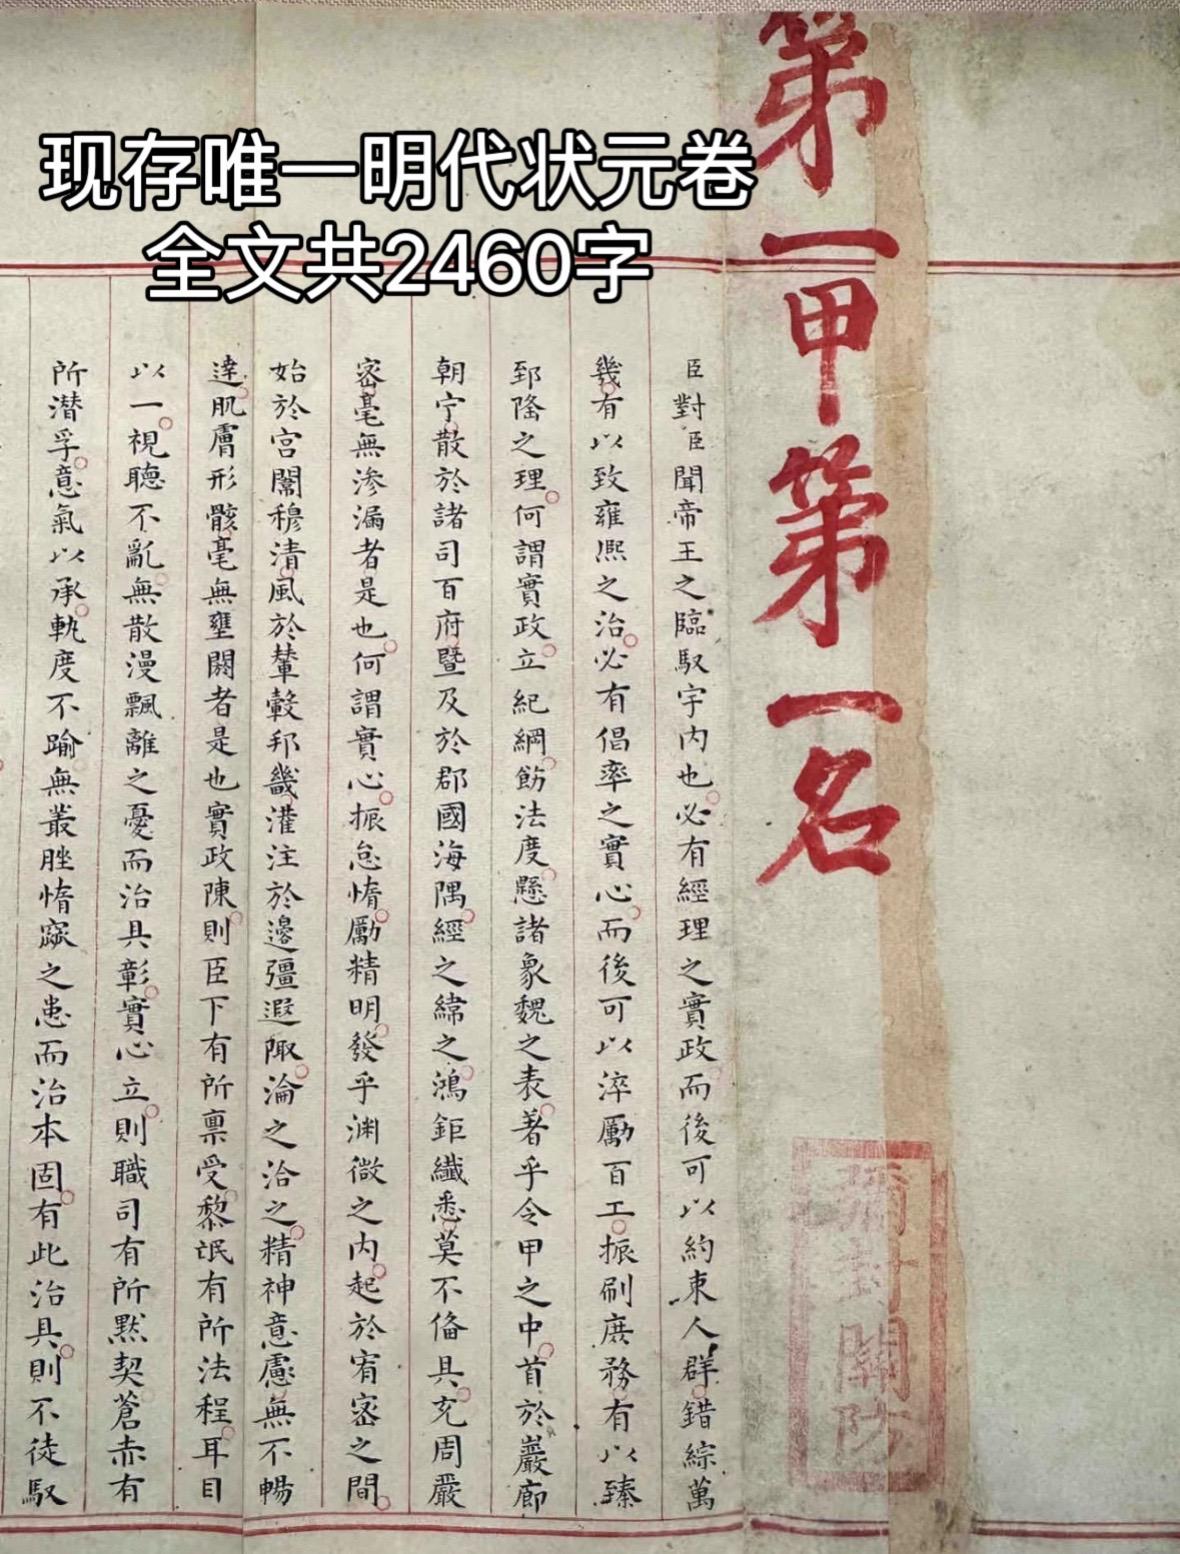 现存唯一明代状元卷
全文共2460字
第一甲第一名
彌封關防
臣對臣聞帝王之臨馭宇内也必有經理之實政而後可以約束人群錯綜萬
幾有以致雍熙之治必有倡率之實心而後可以淬厲百工振刷庶務有以臻
郅隆之理何謂實政立紀綱飭法度懸諸象魏之表著乎令甲之中首於巖廊
朝宁散於諸司百府暨及於郡國海隅經之緯之鴻鉅纖悉莫不偹具充周嚴
密毫無滲漏者是也何謂實心振怠惰勵精明發乎渊微之内起於宥密之間
始於宫閫穆清風於輦轂邦畿灌注於邊疆遐陬淪之洽之精神意慮無不暢
達肌膚形骸毫無壅閼者是也實政陳則臣下有所禀受黎氓有所法程耳目
以一視聽不亂無散漫飄離之憂而治具彰實心立則職司有所默契蒼赤有
所潜孚意氣以承軌度不踰無叢脞惰窳之患而治本固有此治具則不徒馭